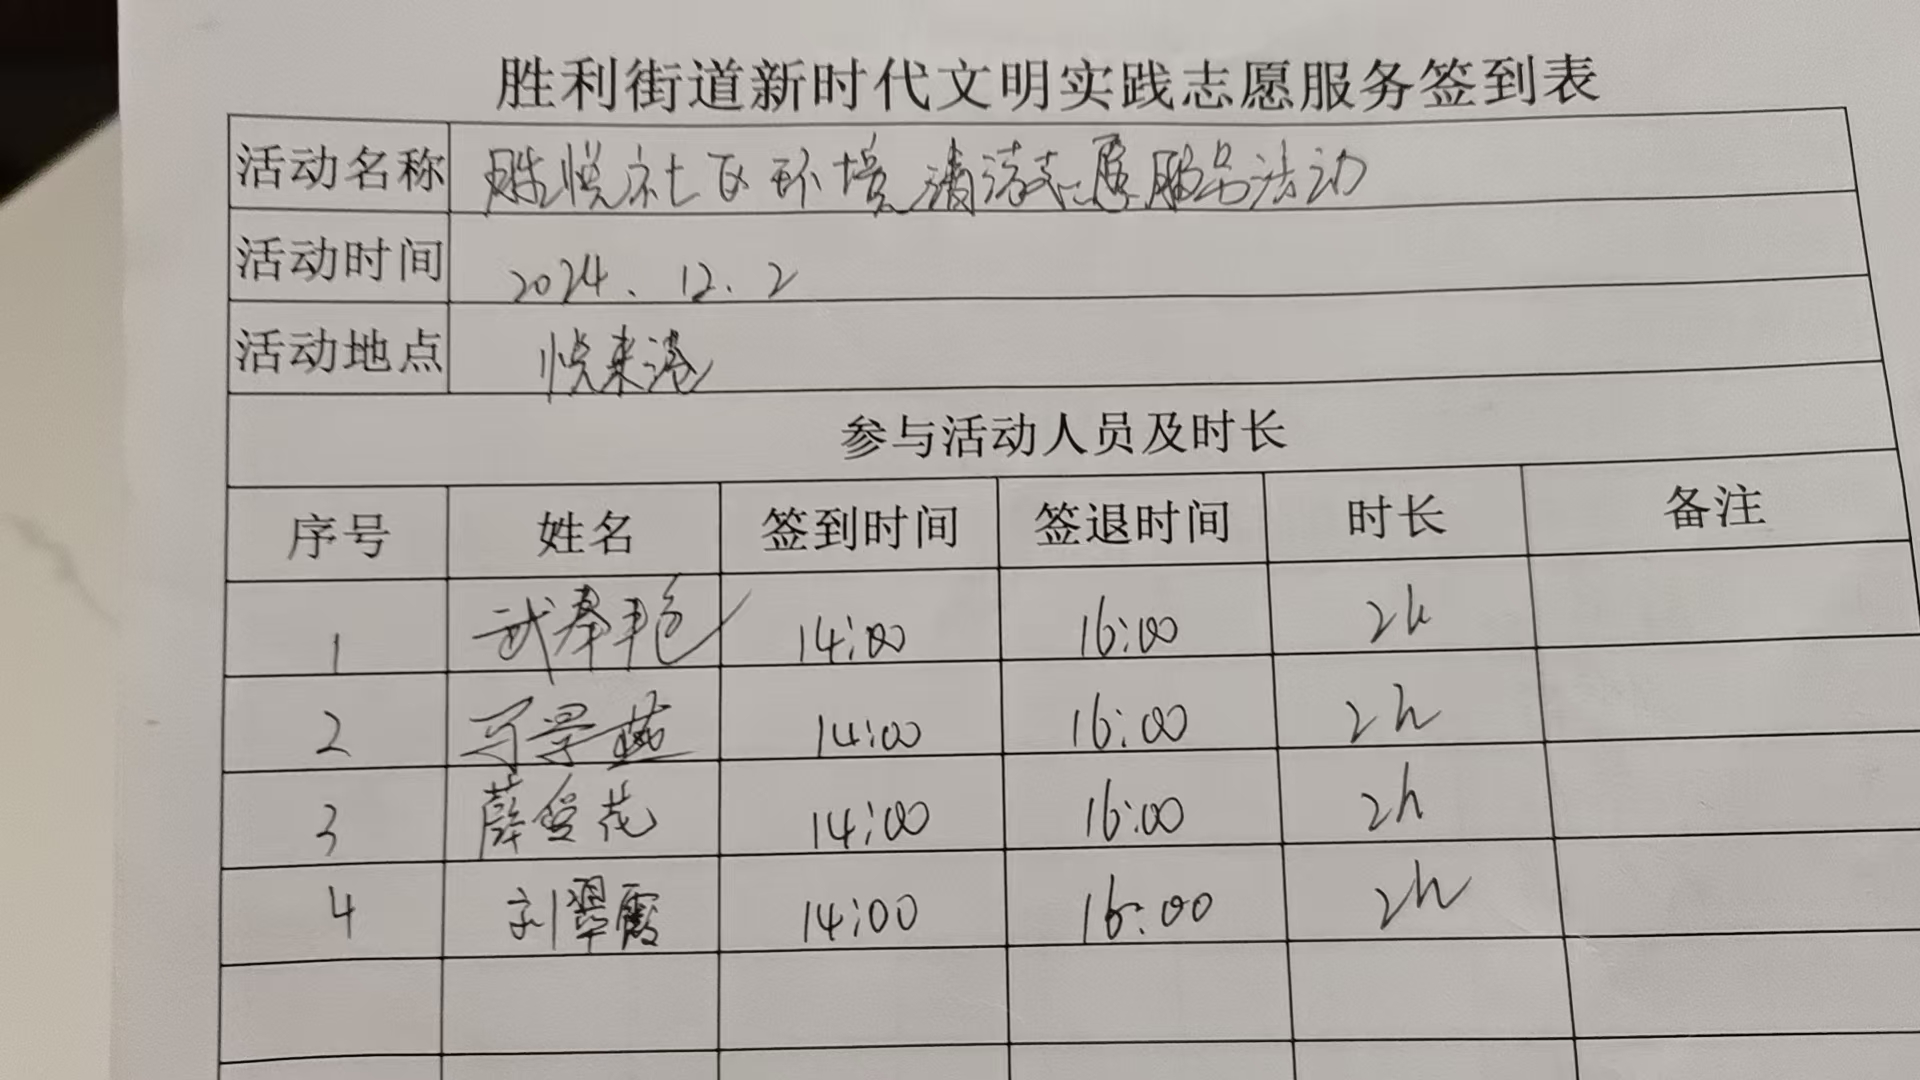 胜利街道新时代文明实践志愿服务签到表
活动名称 胜悦社区环境清洁志愿服务活动
活动时间 2024.12.2
活动地点 悦来港
参与活动人员及时长
序号 姓名 签到时间 签退时间 时长 备注
1 武春艳 14:00 16:00 2h
2 马景燕 14:00 16:00 2h
3 薛爱花 14:00 16:00 2h
4 刘翠霞 14:00 16:00 2h